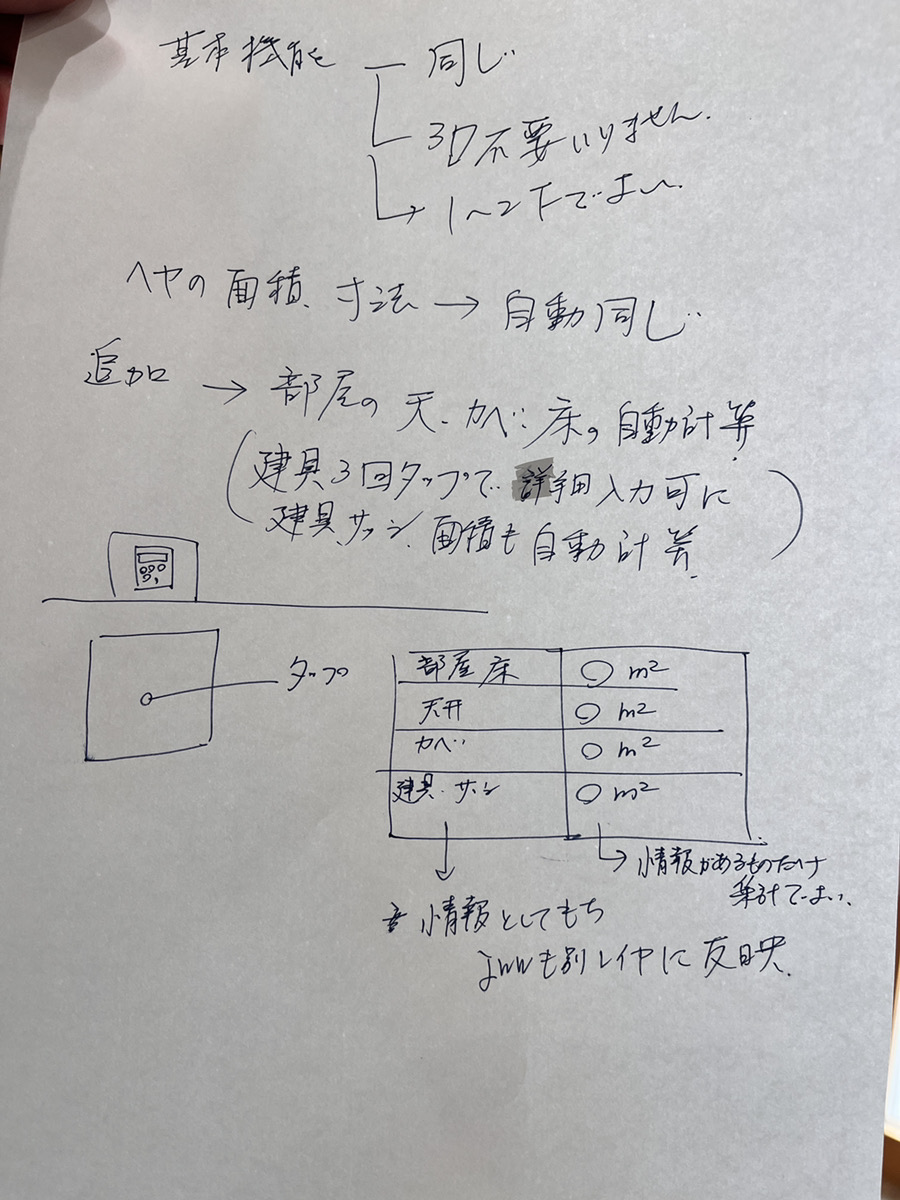 基本機能 — 同じ
3D不要いりません.
→ 1〜2Fでよい.
ヘヤの面積、寸法 → 自動同じ
追加 → 部屋の 天、カベ、床の自動計算
(建具3回タップで 詳細入力可に
建具、サッシ、面積も自動計算)
タップ
部屋床 ○ m2
天井 ○ m2
カベ ○ m2
建具・サッシ ○ m2
→ 情報があるものだけ
集計でよい、
情報としてもち
jwwも別レイヤに反映